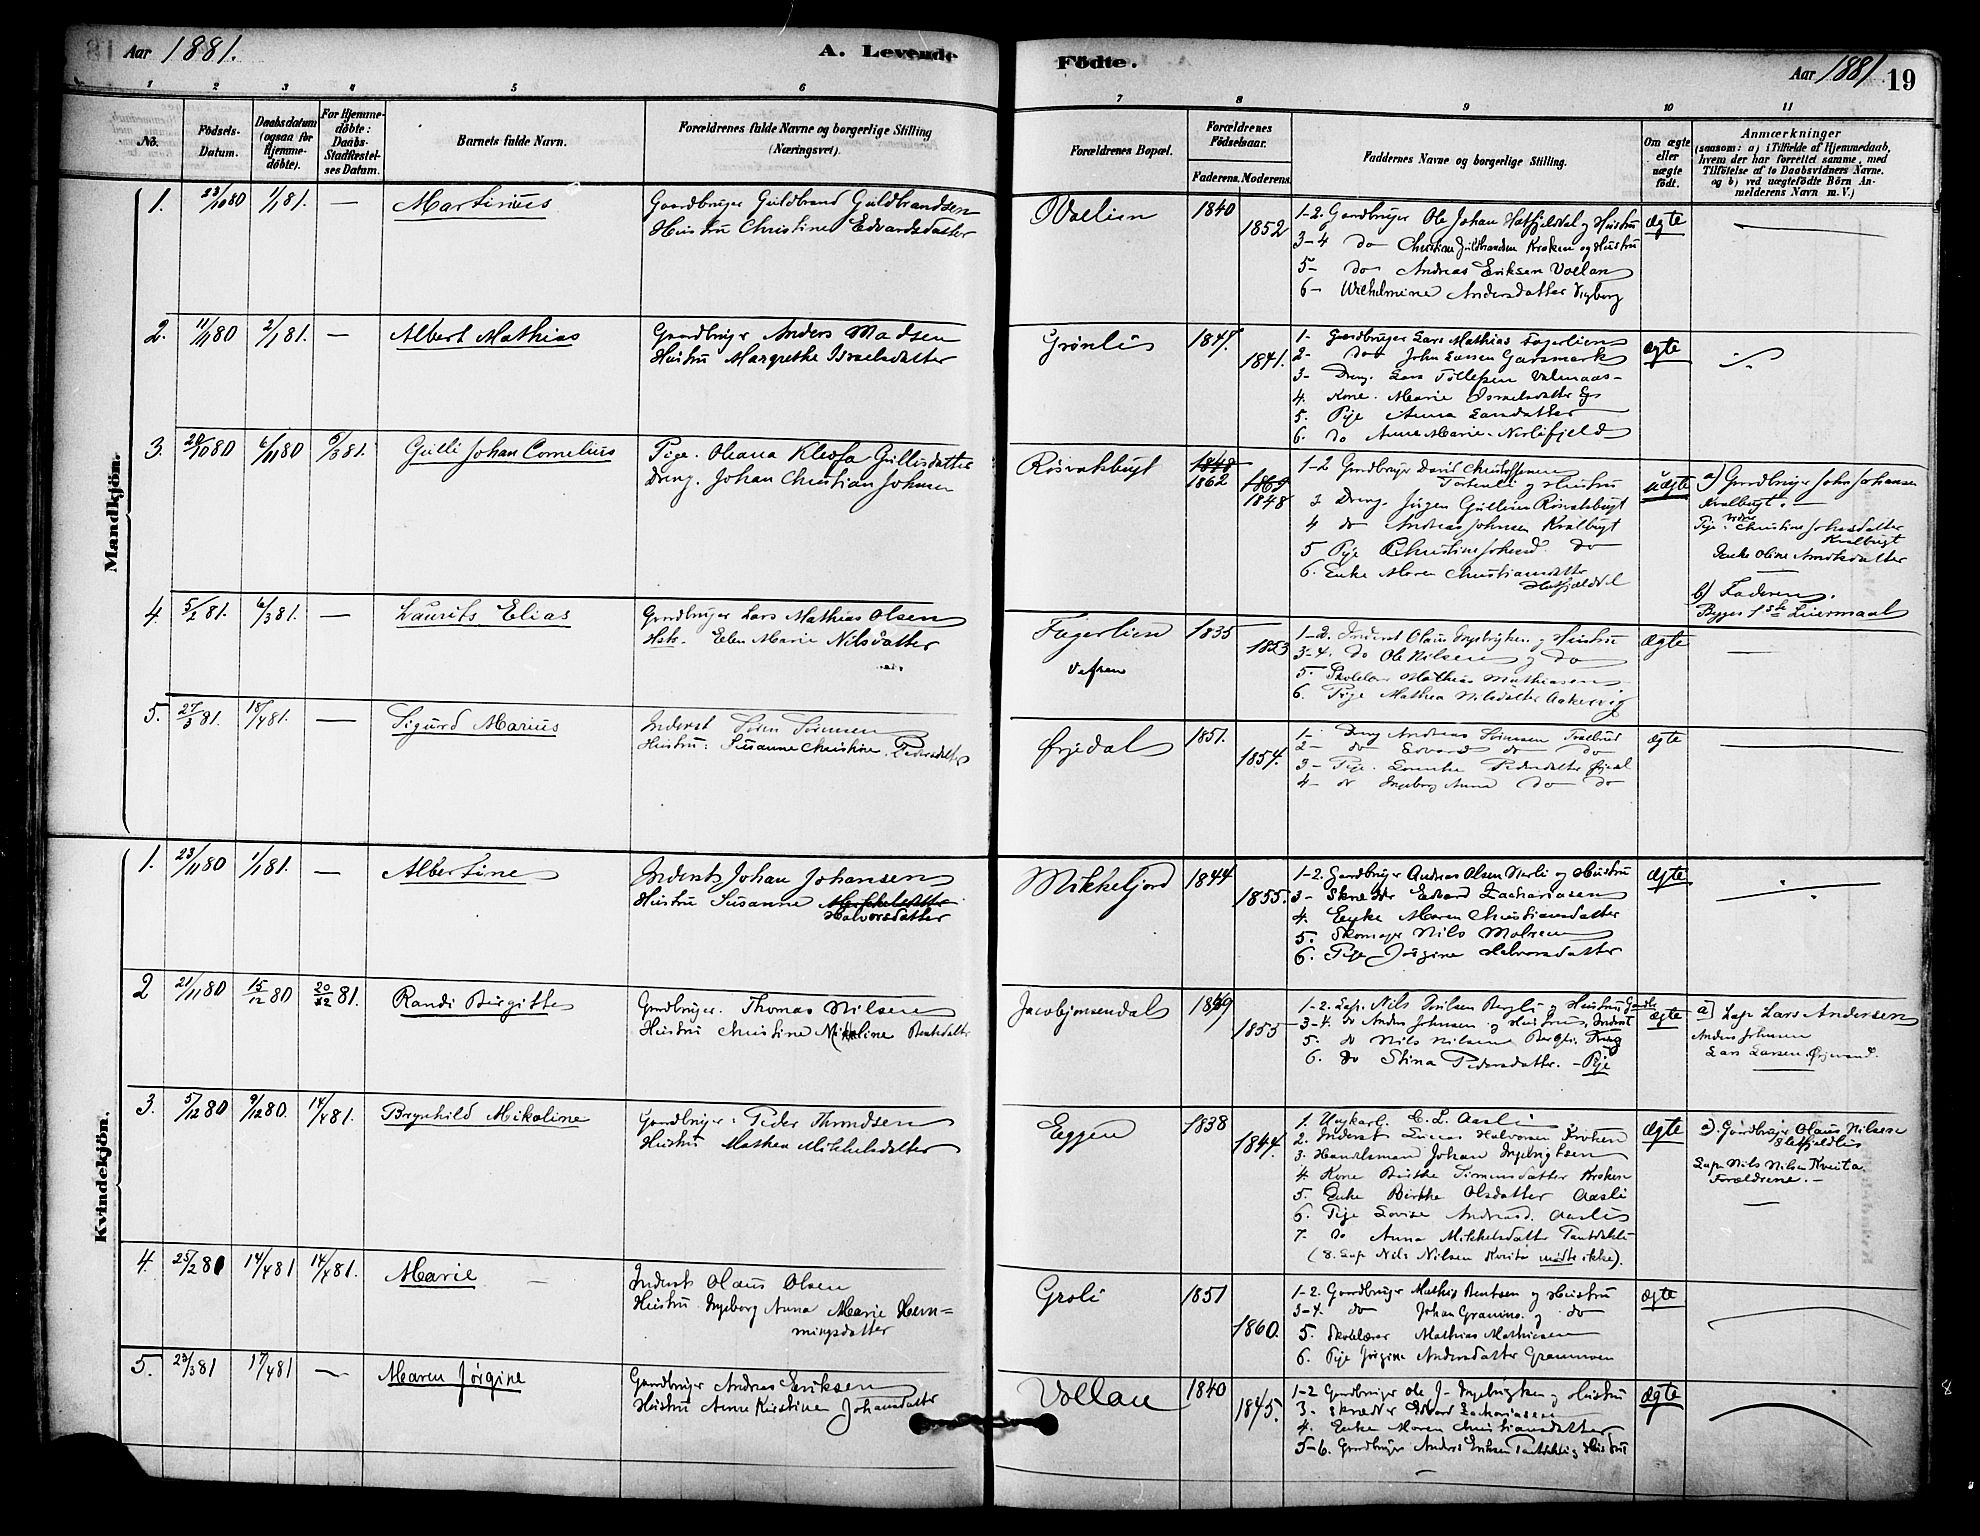 Aar 1881.
A. Levende
Födte.
Aar 1881
19
1
2
3
4
5
6
7
8
9
10
11
No.
Födsels-
Datum.
Daabsdatum
(ogsaa for
Hjemme-
döbte).
For Hjemme-
döbte:
Daabs-
Stadfæstel-
ses Datum.
Barnets fulde Navn.
Forældrenes fulde Navne og borgerlige Stilling
(Næringsvei).
Forældrenes Bopæl.
Forældrenes
Födselsaar.
Faderens.
Moderens.
Faddernes Navne og borgerlige Stilling.
Om ægte
eller
uægte
födt.
Anmærkninger
(saasom: a) i Tilfælde af Hjemmedaab,
hvem der har forrettet samme, med
Tilföielse af to Daabsvidners Navne.
og b) ved uægtefödte Börn An-
melderens Navn m. V.)
Mandkjön.
1. 23/10 80 1/1 81. — Martinus
Gaardbruger Guldbrand Guldbrandsen
Hustru Christine Edvardsdatter
1840
1852
1-2. Gaardbruger Ole Johan Hatfjeldal og Hustru
3-4 do Christian Guldbrandsen Kroken og Hustru
5- do Andreas Eriksen Vollan
6- Wilhelmine Andersdatter
ægte
2. 11/11 80 2/1 81. — Albert Mathias
Gaardbruger Anders Madsen
Hustru Margrethe Israelsdatter
Grønli
1847.
1841.
1- Gaardbruger Lars Mathias Fagerlien
2- do John Larsen Garsmark
3- Dreng. Lars Tollefsen
4. Kone. Marie Israelsdatter
5. Pige Anna Larsdatter
6. do Anne Marie
ægte
3. 20/10 80 6/11 80 6/3 81. Gulli Johan Cornelius
Pige. Oliana Kleofa Gullisdatter
Dreng. Johan Christian Johnsen
Røsvatsbugt
1848
1862
1848
1-2 Gaardbruger David Christoffersen
og Hustru
3 Dreng. Jørgen Gullisen Røsvatsbugt
4 do Andreas Johnsen Kvalbugt
5 Pige Christine Johnsd. do
6. Enke Maren Christiansdatter
Hatfjeldal
uægte
a) Gaardbruger John Johansen
Kvalbugt. —
Pige Christine Johnsdatter
Kvalbugt
Enke Oline
b) Faderen.
Begges 1ste Leiermaal
4. 5/2 81. 6/3 81. — Laurits Elias
Gaardbruger Lars Mathias Olsen
Hstr. Elen Marie Nilsdatter
Fagerlien
Vefsen
1835
1853
1-2. Inderst Olaus Ingebrigtsen og Hustru
3-4. do Ole Nilsen og do
5. Skolelærer Mathias Mathiasen
6. Pige Mathea Nilsdatter Aakervig
ægte
5. 27/3 81. 18/4 81. — Sigurd Marius
Inderst Søren Sørensen
Hustru: Susanne Christine Pedersdatter
Ørjedal
1851.
1854.
1- Dreng Andreas Sørensen
2- do Edvard do do
3- Pige. Pedersdatter
4- do Ingeborg Anna do do
ægte
Kvindekjön.
1. 23/11 80 1/1 81. — Albertine
Inderst Johan Johansen
Hustru Susanne Mikkelsdatter
Halvorsdatter
Mikkeljord
1844
1855.
1-2. Gaardbruger Andreas Olsen og Hustru
3- Skrædder Edvard Zachariasen
4. Enke Maren Christiansdatter
5. Skomager Nils
6. Pige Jørgine Halvorsdatter
ægte
2 21/11 80 15/12 80 20/12 81. Randi Birgitte
Gaardbruger. Thomas Nilsen
Hustru Christine Nikoline Bentsdatter
Jacobjonsendal
1849
1855
1-2. Lap. Nils Nilsen Bergli og Hustru
3-4. do Anders Johnsen og Hustru, Inderst
5. do Nils Nilsen Bergli. Dreng
6. do Stina Pedersdatter. — Pige
ægte
a) Lap Lars Andersen
Anders Johnsen
Lars Larsen.
3. 5/12 80 9/12 80. 14/4 81. Brynhild Mikaline
Gaardbruger: Peder Thomdsen
Hustru Mathea Mikkelsdatter
Eggen
1838
1844.
1. Ungkarl. C. L. Aasli
2. Inderst Lucas Halvorsen Kroken
3. Handelsmand Johan Ingebrigtsen
4. Kone Birthe Simonsdatter Kroken
5. Enke Birthe Olsdatter Aasli
6. Pige Lovise Andreasd. Aasli
7. do Anna Mikkelsdatter
(8. Lap Nils Nilsen Kvita mødte ikke).
ægte
a). Gaardbruger Olaus Nilsen
Lap Nils Nilsen Kvita
Forældrene. —
4. 25/2 81 14/4 81 14/4 81. Marie —
Inderst Olaus Olsen
Hustru. Ingeborg Anna Marie Hem=
mingsdatter
Groli
1851
1860.
1-2. Gaardbruger Mathis Bentsen og Hustru
3-4. do Johan og do
5. Skolelærer Mathias Mathiasen
6. Pige Jørgine Andersdatter
ægte
5. 23/3 81 17/4 81 — Maren Jørgine
Gaardbruger Andreas Eriksen
Hustru Anne Kirstine Johansdatter
Vollan
1840
1845.
1-2 Gaardbruger Ole J. Ingebrigtsen og Hustru
3- Skrædder Edvard Zachariassen
4. Enke Maren Christiansdatter
5-6. Gaardbruger Anders Eriksen og Hustru
ægte